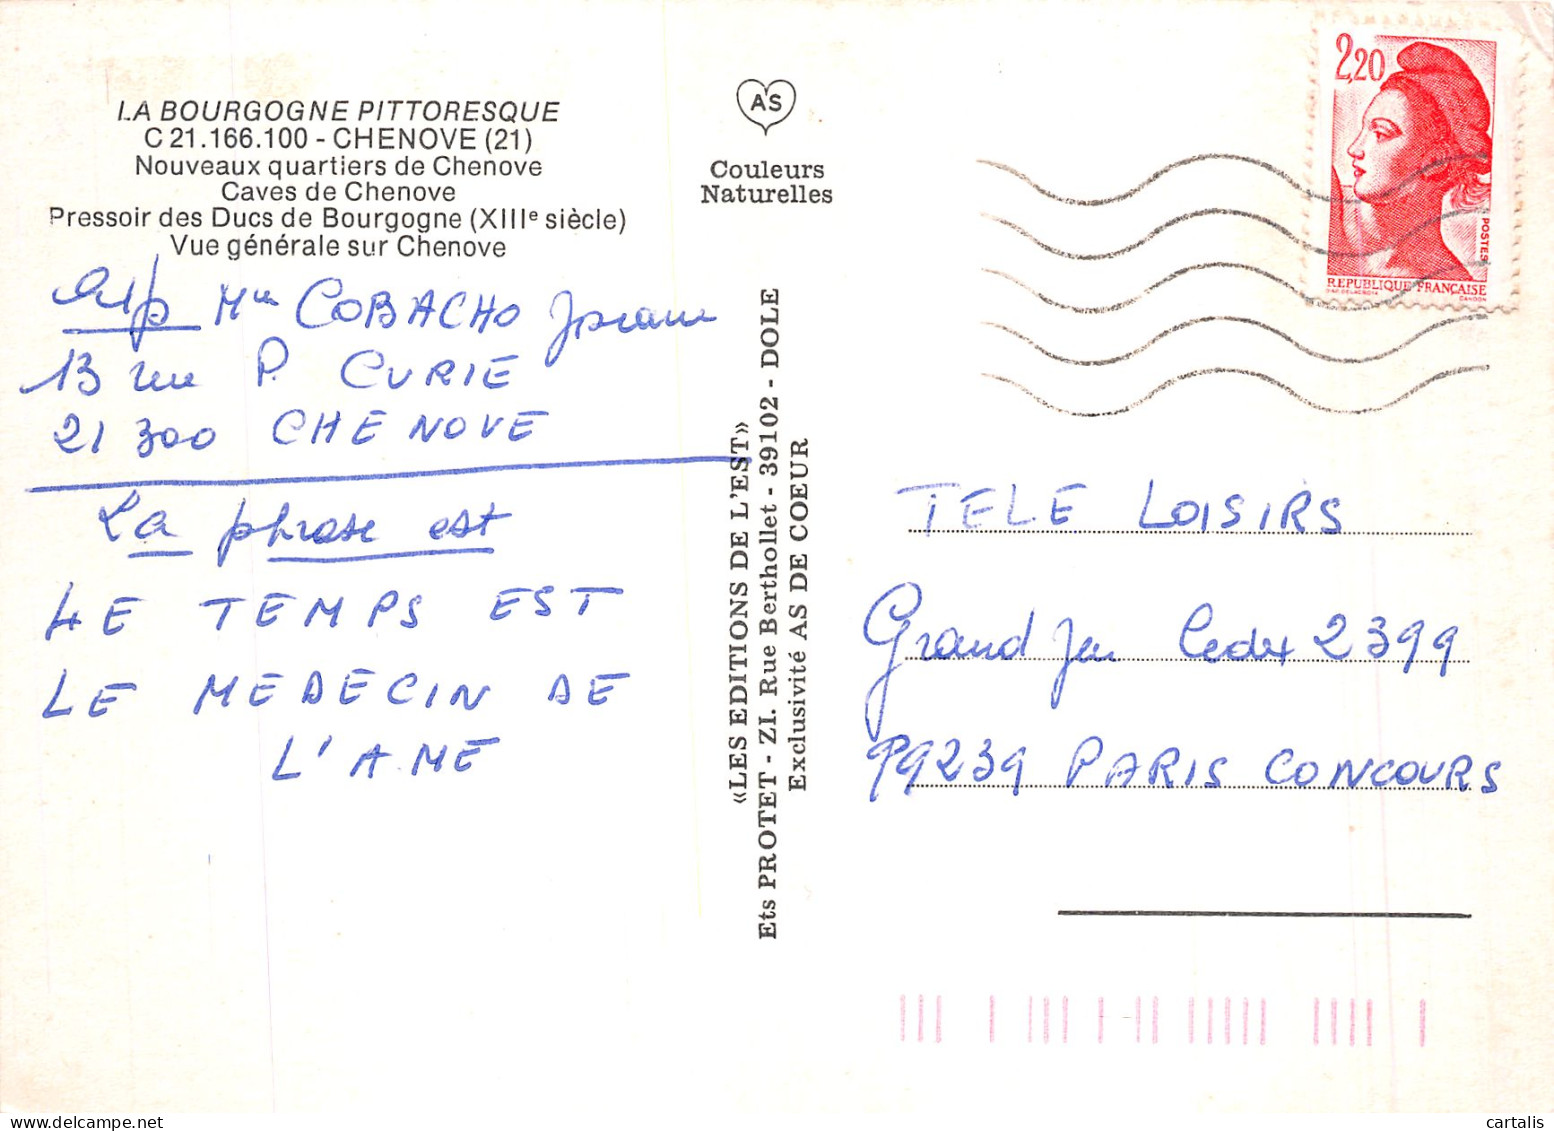 LA BOURGOGNE PITTORESQUE
C 21.166.100 - CHENOVE (21)
Nouveaux quartiers de Chenove
Caves de Chenove
Pressoir des Ducs de Bourgogne (XIIIe siècle)
Vue générale sur Chenove
COBACHO
13 rue P. CURIE
21 300 CHENOVE
La phrase est
LE TEMPS EST
LE MEDECIN DE
L'AME
AS
Couleurs
Naturelles
«LES EDITIONS DE L'EST»
Ets PROTET - ZI. Rue Berthollet - 39102 - DOLE
Exclusivité AS DE COEUR
2,20
POSTES
REPUBLIQUE FRANÇAISE
TELE LOISIRS
Grand Jeu Cedex 2399
99239 PARIS CONCOURS
cartalis